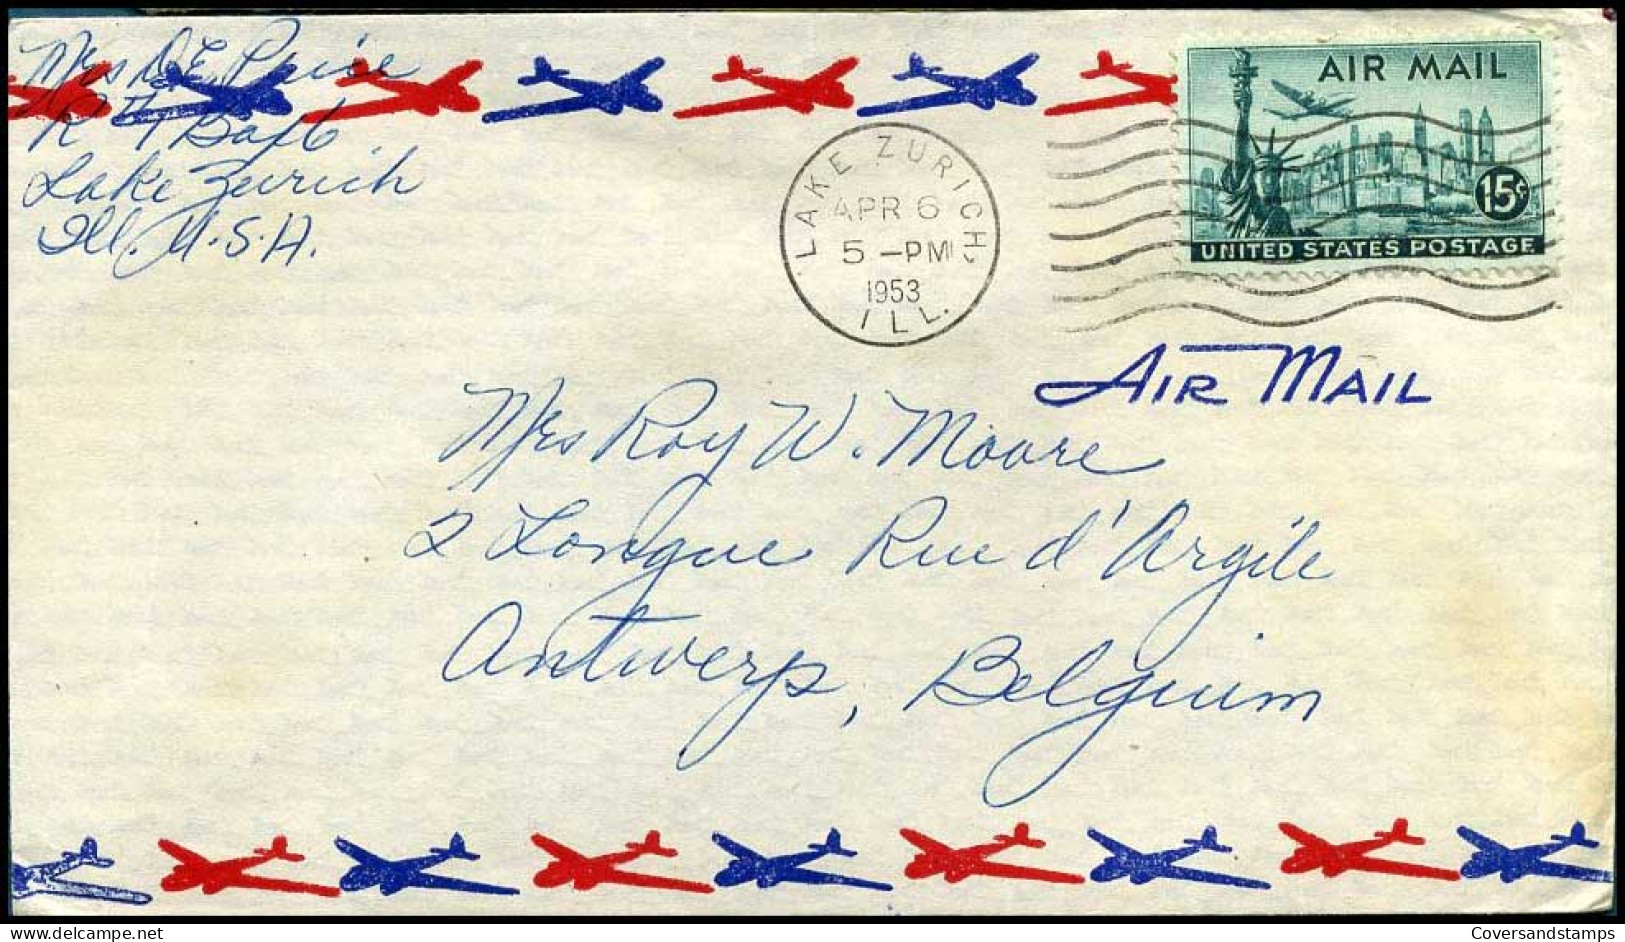 Mrs D. E. Price
R #1 Box 6
Lake Zurich
Ill. U.S.A.
LAKE ZURICH
APR 6
5 -PM
1953
ILL.
AIR MAIL
15¢
UNITED STATES POSTAGE
AIR MAIL
Mrs Roy W. Moore
2 Longue Rue d'Argile
Antwerp, Belguim
Coversandstamps